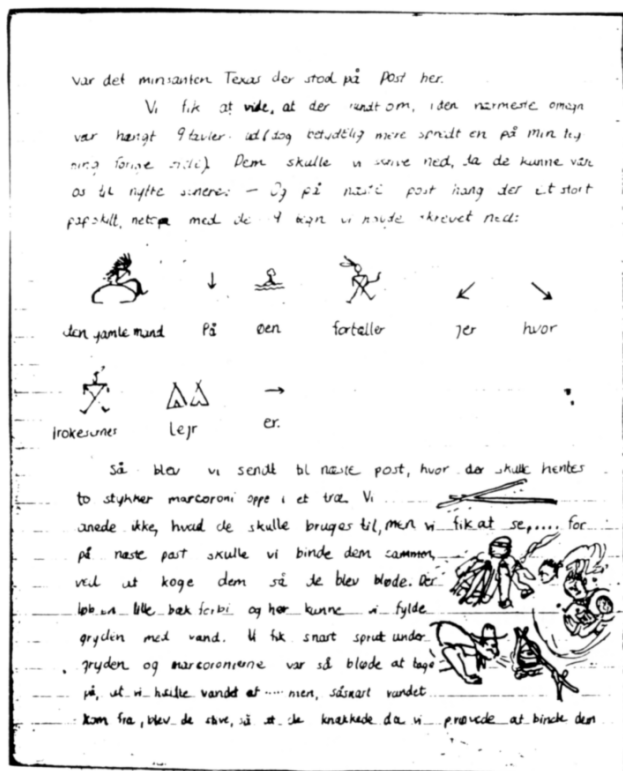 var det minsanten Texas der stod på Post her.
Vi fik at vide, at der rundt om, i den nærmeste omegn
var hængt 9 tavler ud (dog betydelig mere spredt en på min
forrige side). Dem skulle vi skrive ned, da de kunne vær
os til nytte senere. — Og på næste post hang der et stort
papskilt, netop med de 9 tegn vi havde skrevet ned:
den gamle mand På øen fortæller jer hvor
irokesernes Lejr er.
Så blev vi sendt til næste post, hvor der skulle hentes
to stykker marcoroni oppe i et træ. Vi
anede ikke, hvad de skulle bruges til, men vi fik at se,.... for
på næste post skulle vi binde dem sammen,
ved at koge dem så de blev bløde. Der
løb en lille bæk forbi og her kunne vi fylde
gryden med vand. Vi fik snart sprut under
gryden og marcoronierne var så bløde at tage
på, at vi hældte vandet af .... men, såsnart vandet
kom fra, blev de stive, så at de knækkede da vi prøvede at binde dem